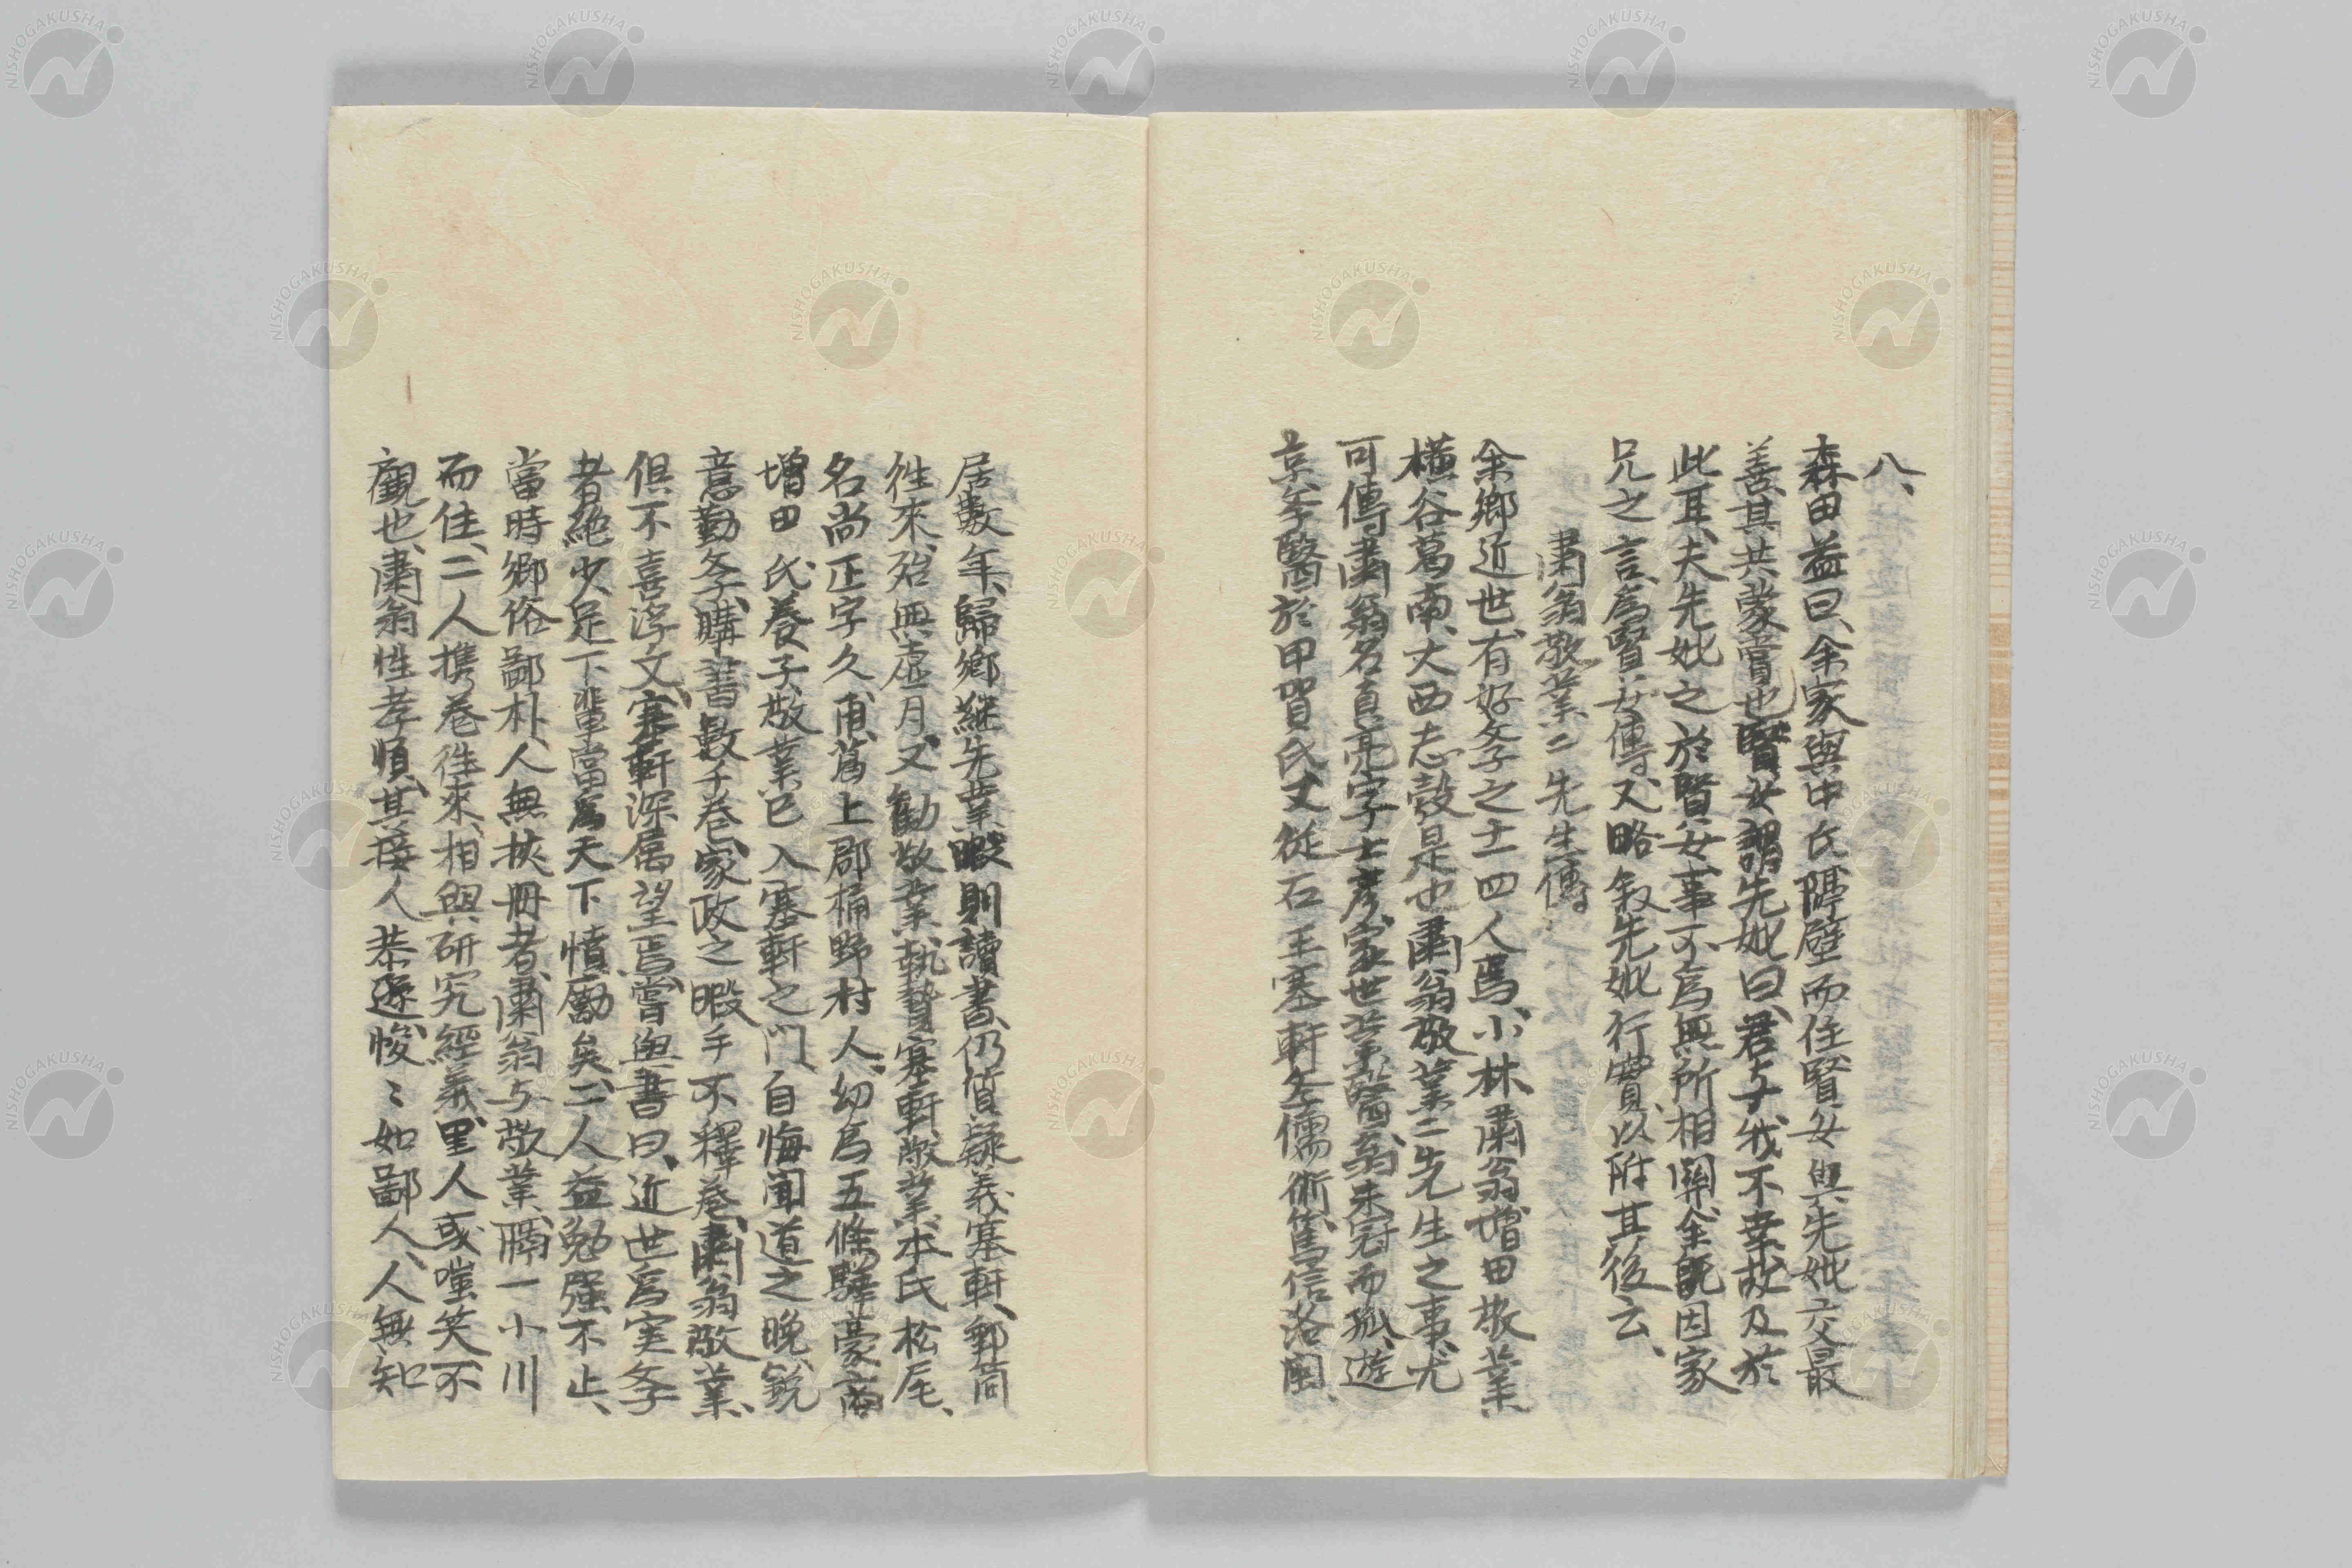 八、
森田益曰、余家與中氏隣壁而住、賢女與先妣交最
善、其共蒙賞也、賢女謂先妣曰、君与我不幸故及於
此耳、夫先妣之於賢女事不為無所相關、余既因家
兄之言、為賢女傳、又略叙先妣行實、以附其後云、
肅翁敬業二先生傳
余郷近世有好斈之士四人焉、小林肅翁増田敬業
横谷葛南、大西志毅是也、肅翁敬業二先生之事、尤
可傳、肅翁名貞亮、字士彦、家世業醫、翁未冠而孤、遊
京斈醫於甲賀氏、又從石王塞軒斈儒術、篤信洛閩、
居數年、歸鄉継先業、暇則讀書、仍質疑義塞軒、郵筒
徃來、殆無虚月、又勧敬業、執贄塞軒、敬業本氏松尾、
名尚正、字久甫、葛上郡楢野村人、幼為五條驛豪商
増田氏養子、敬業已入塞軒之門、自悔聞道之晩、鋭
意勤斈、購書數千巻、家政之暇、手不釋巻、肅翁敬業、
倶不喜浮文、塞軒深属望焉、嘗與書曰、近世為実斈
者絶少、足下輩當為天下憤勵矣、二人益勉强不止、
當時鄉俗鄙朴、人無挾冊者、肅翁与敬業、隔一小川
而住、二人携巻徃來、相與研究經義、里人或嗤笑不
觀也、肅翁性孝順、其接人恭遜、悛〻如鄙人、人無知